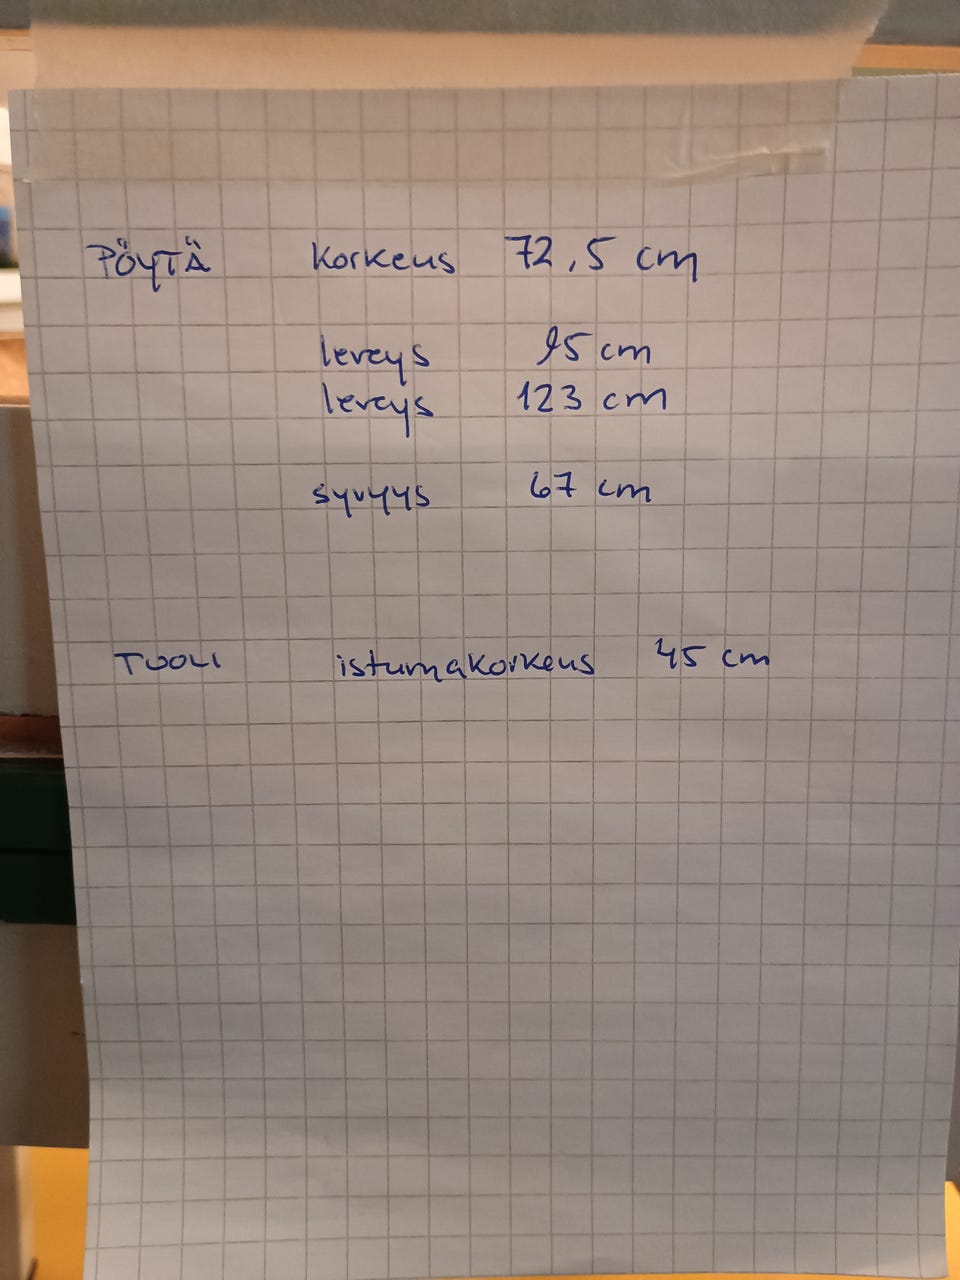 PÖYTÄ korkeus 72,5 cm
leveys 95 cm
leveys 123 cm
syvyys 67 cm
TUOLI istumakorkeus 45 cm